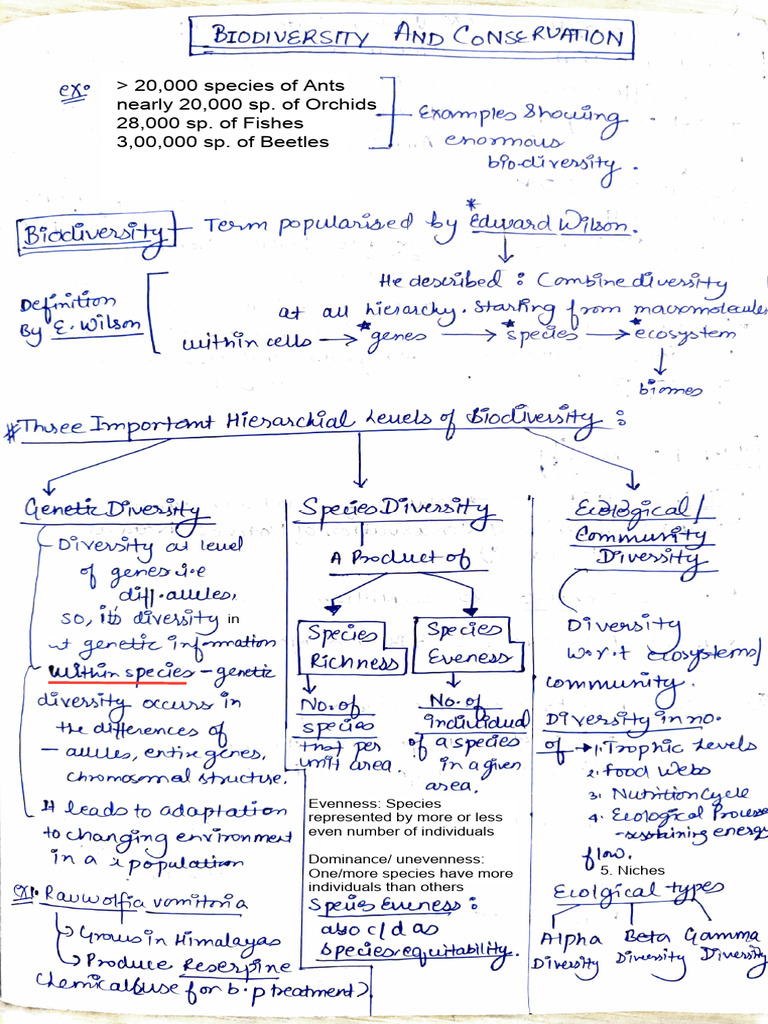 BIODIVERSITY AND CONSERVATION
ex:
> 20,000 species of Ants
nearly 20,000 sp. of Orchids
28,000 sp. of Fishes
3,00,000 sp. of Beetles
Examples Showing
enormous
bio-diversity.
Biodiversity - Term popularised by *Edward Wilson.
Definition
By E. Wilson
He described : Combine diversity
at all hierarchy. Starting from macromolecules
within cells → genes → species → ecosystem
↓
biomes
# Three Important Hierarchial Levels of Biodiversity :
Genetic Diversity
- Diversity at level
of genes i.e
diff. alleles,
so, its diversity in
genetic information
- within species - genetic
diversity occurs in
the differences of
- alleles, entire genes,
chromosomal structure.
It leads to adaptation
to changing environment
in a population
ex:. Rauwolfia vomitoria
→ Grows in Himalayas
→ Produce Reserpine
Chemical (use for b.p treatment)
Species Diversity
A Product of
Species
Richness
No. of
species
that per
unit area.
Species
Eveness
No. of
individual
of a species
in a given
area.
Evenness: Species
represented by more or less
even number of individuals
Dominance/ unevenness:
One/more species have more
individuals than others
Species Eveness :
also c/d as
species equitability.
Ecological /
Community
Diversity
Diversity
w.r.t ecosystems/
community.
Diversity in no.
of → 1. Trophic Levels
2. Food Webs
3. Nutrition Cycle
4. Ecological Process
- sustaining energy
flow.
5. Niches
Ecolgical types
Alpha
Diversity
Beta
Diversity
Gamma
Diversity